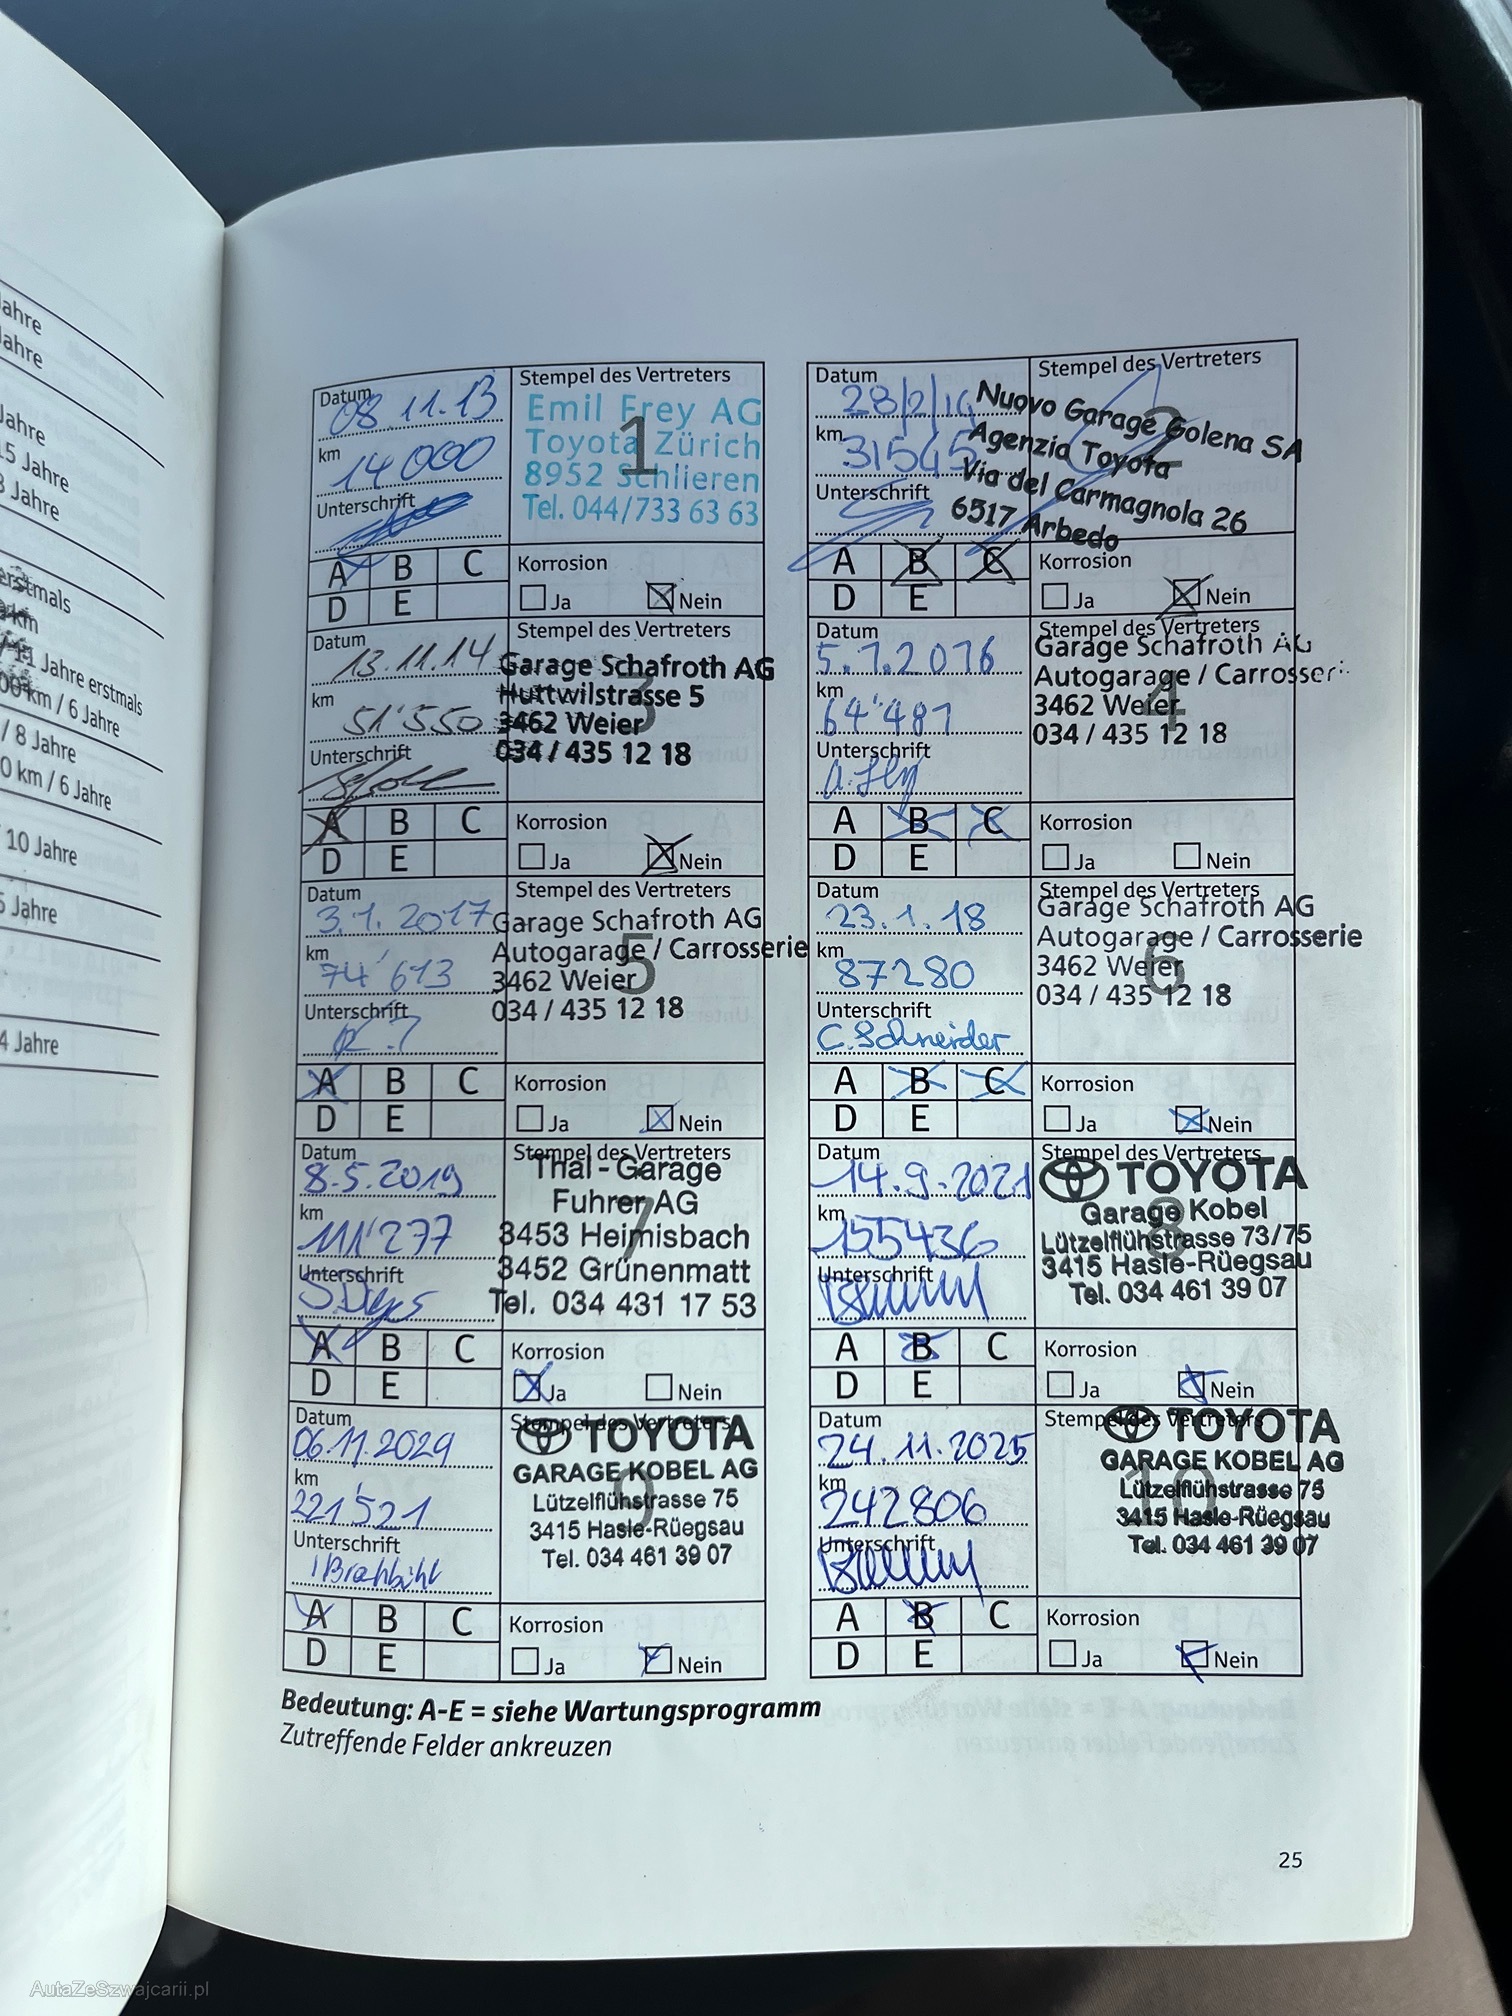 ahre
Jahre
Jahre
15 Jahre
8 Jahre
erstmals
km
11 Jahre erstmals
00 km / 6 Jahre
/ 8 Jahre
0 km / 6 Jahre
10 Jahre
5 Jahre
4 Jahre
Datum 08.11.13
km 14000
Unterschrift
Stempel des Vertreters
1
Emil Frey AG
Toyota Zürich
8952 Schlieren
Tel. 044/733 63 63
A B C
D E
Korrosion
Ja Nein
Datum 28/2/14
km 31545
Unterschrift
Stempel des Vertreters
2
Nuovo Garage Golena SA
Agenzia Toyota
Via del Carmagnola 26
6517 Arbedo
A B C
D E
Korrosion
Ja Nein
Datum 13.11.14
km 51'550
Unterschrift
Stempel des Vertreters
3
Garage Schafroth AG
Huttwilstrasse 5
3462 Weier
034 / 435 12 18
A B C
D E
Korrosion
Ja Nein
Datum 5.1.2016
km 64'481
Unterschrift
Stempel des Vertreters
4
Garage Schafroth AG
Autogarage / Carrosser
3462 Weier
034 / 435 12 18
A B C
D E
Korrosion
Ja Nein
Datum 3.1.2017
km 74'613
Unterschrift
Stempel des Vertreters
5
Garage Schafroth AG
Autogarage / Carrosserie
3462 Weier
034 / 435 12 18
A B C
D E
Korrosion
Ja Nein
Datum 23.1.18
km 87280
Unterschrift
C. Schneider
Stempel des Vertreters
6
Garage Schafroth AG
Autogarage / Carrosserie
3462 Weier
034 / 435 12 18
A B C
D E
Korrosion
Ja Nein
Datum 8.5.2019
km 111'277
Unterschrift
Stempel des Vertreters
7
Thal-Garage
Fuhrer AG
3453 Heimisbach
3452 Grünenmatt
Tel. 034 431 17 53
A B C
D E
Korrosion
Ja Nein
Datum 14.9.2021
km 155436
Unterschrift
Stempel des Vertreters
8
TOYOTA
Garage Kobel
Lützelflühstrasse 73/75
3415 Hasle-Rüegsau
Tel. 034 461 39 07
A B C
D E
Korrosion
Ja Nein
Datum 06.11.2024
km 221'521
Unterschrift
Stempel des Vertreters
9
TOYOTA
GARAGE KOBEL AG
Lützelflühstrasse 75
3415 Hasle-Rüegsau
Tel. 034 461 39 07
A B C
D E
Korrosion
Ja Nein
Datum 24.11.2025
km 242806
Unterschrift
Stempel des Vertreters
10
TOYOTA
GARAGE KOBEL AG
Lützelflühstrasse 75
3415 Hasle-Rüegsau
Tel. 034 461 39 07
A B C
D E
Korrosion
Ja Nein
Bedeutung: A-E = siehe Wartungsprogramm
Zutreffende Felder ankreuzen
25
AutaZeSzwajcarii.pl